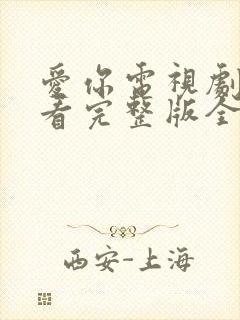 愛你電視劇
看完整版全
西安-上海